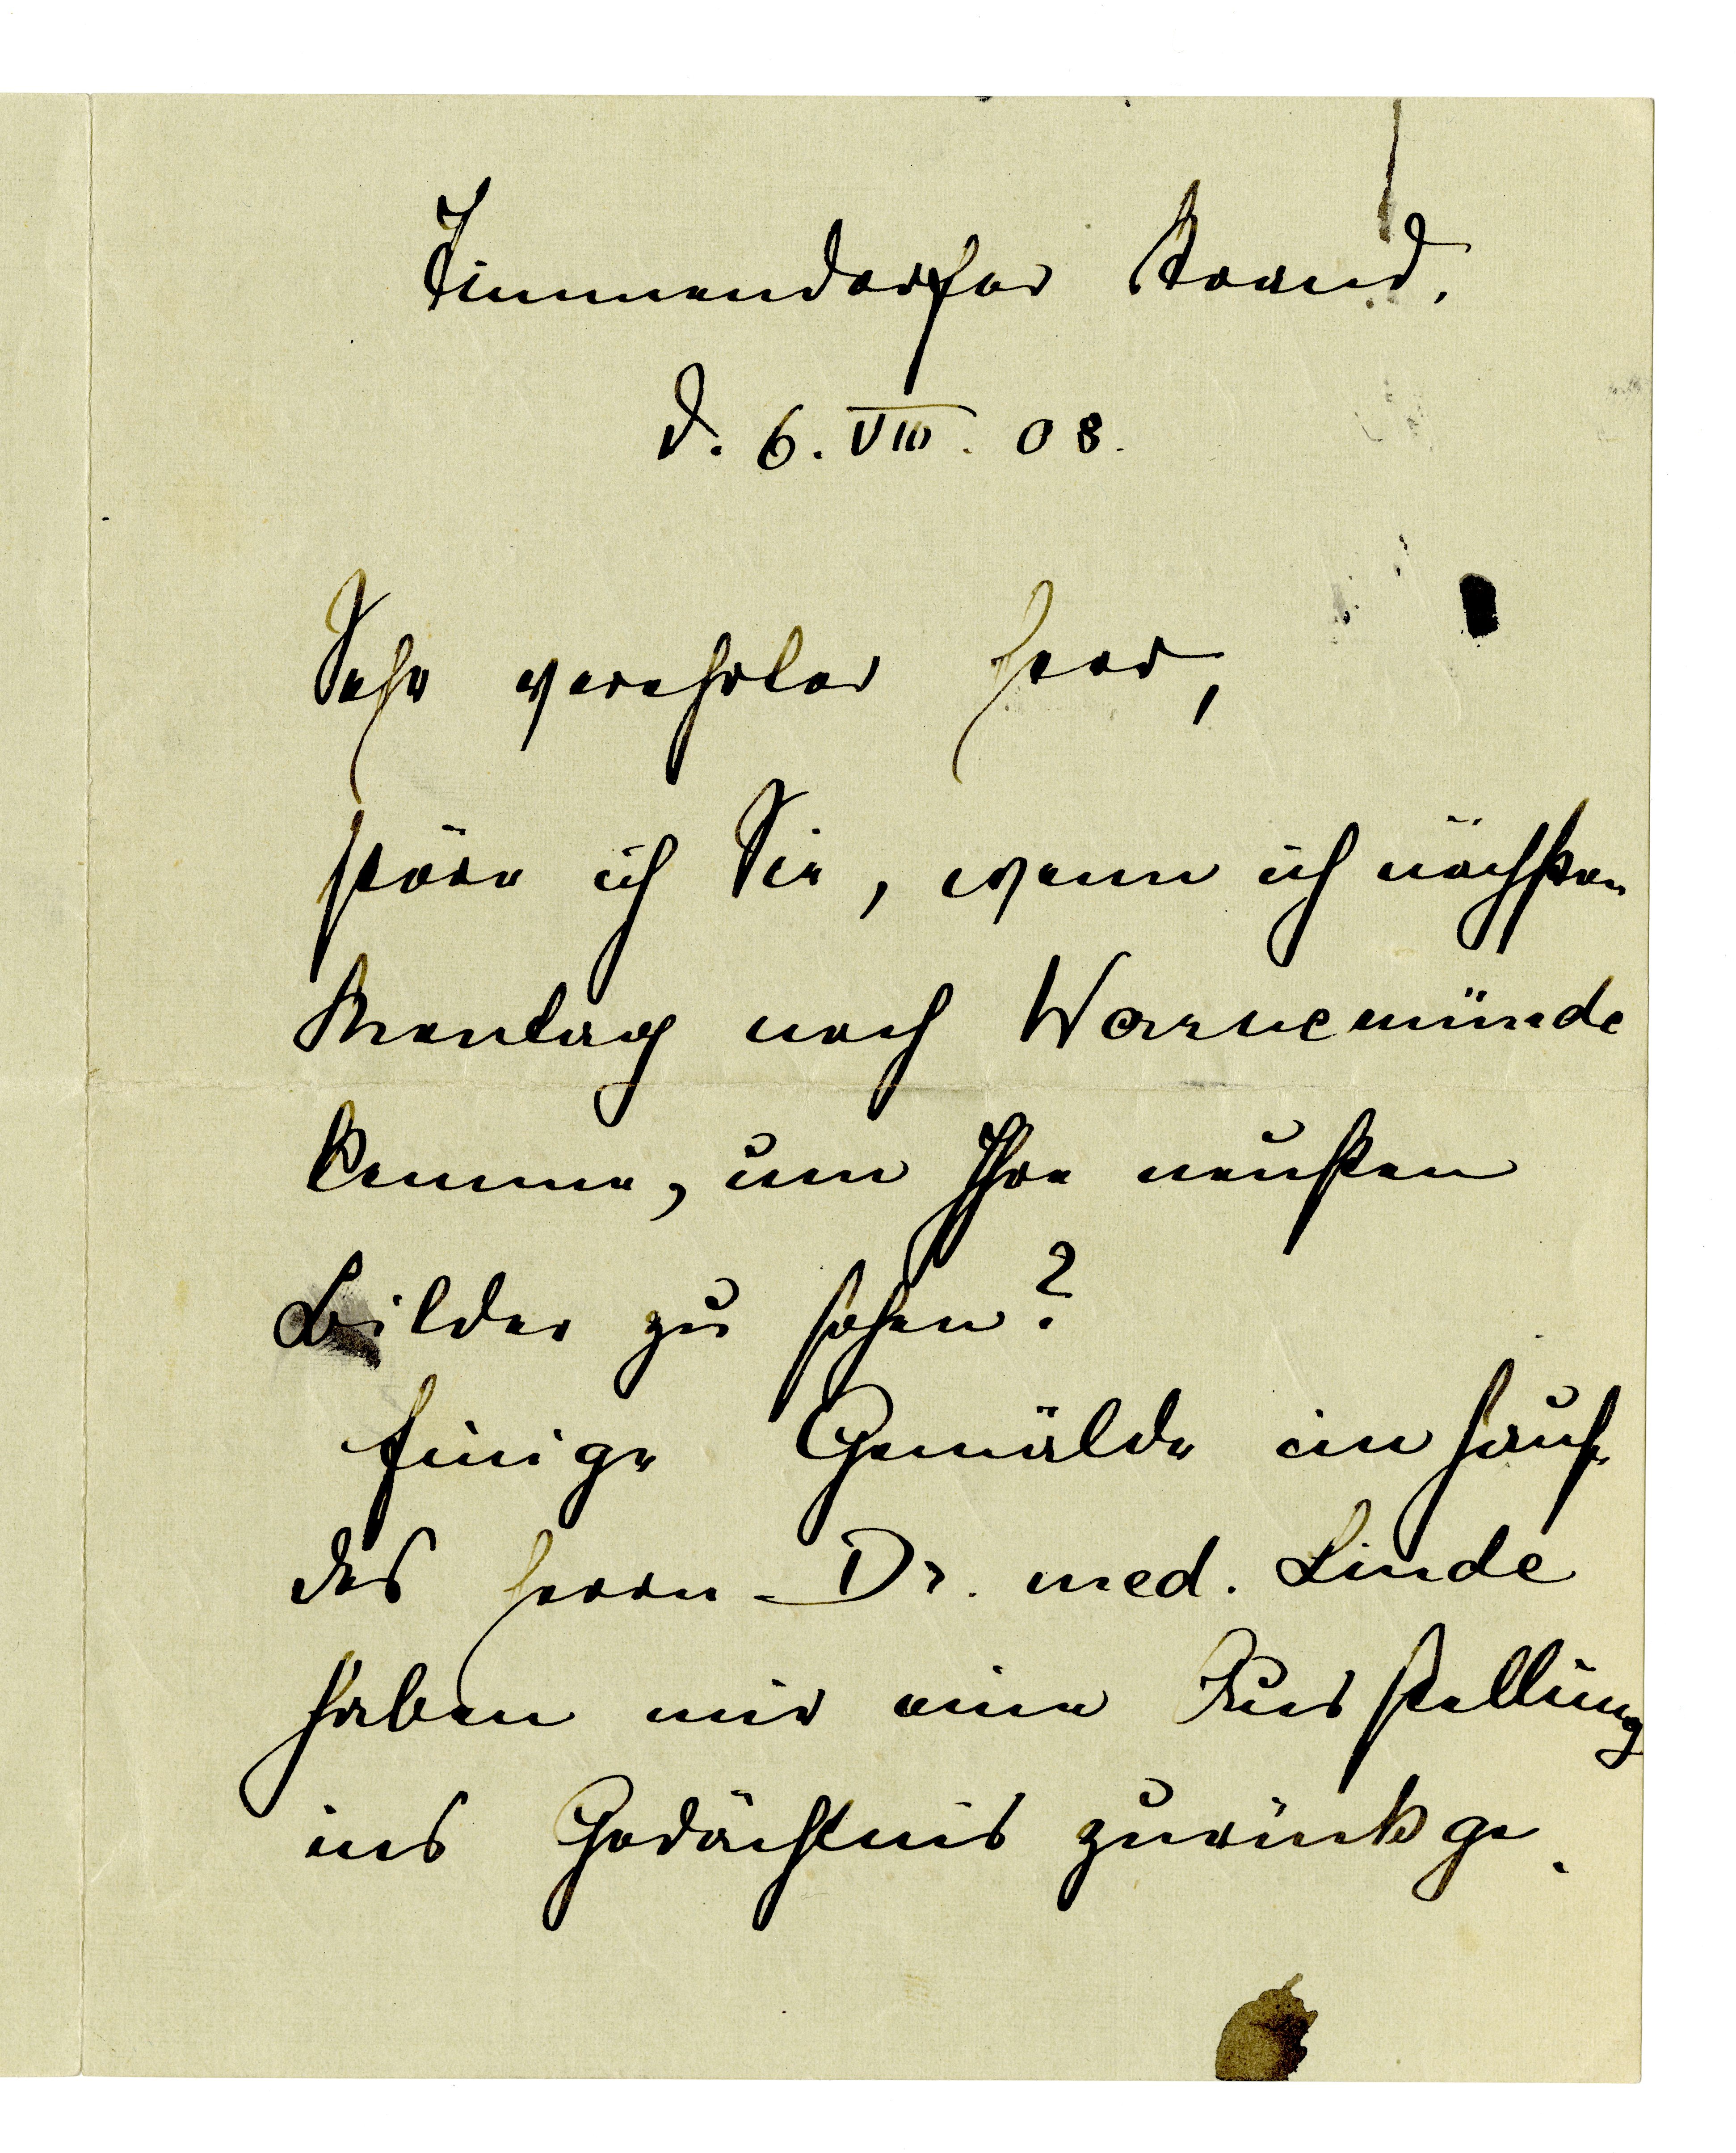 Timmendorfer Strand.
d. 6. VIII. 08.
Sehr verehrter Herr,
störe ich Sie, wenn ich nächsten
Montag nach Warnemünde
komme, um Ihre neusten
Bilder zu sehen?
Einige Gemälde im Hause
des Herrn Dr. med. Linde
haben mir eine Ausstellung
ins Gedächtnis zurückge-